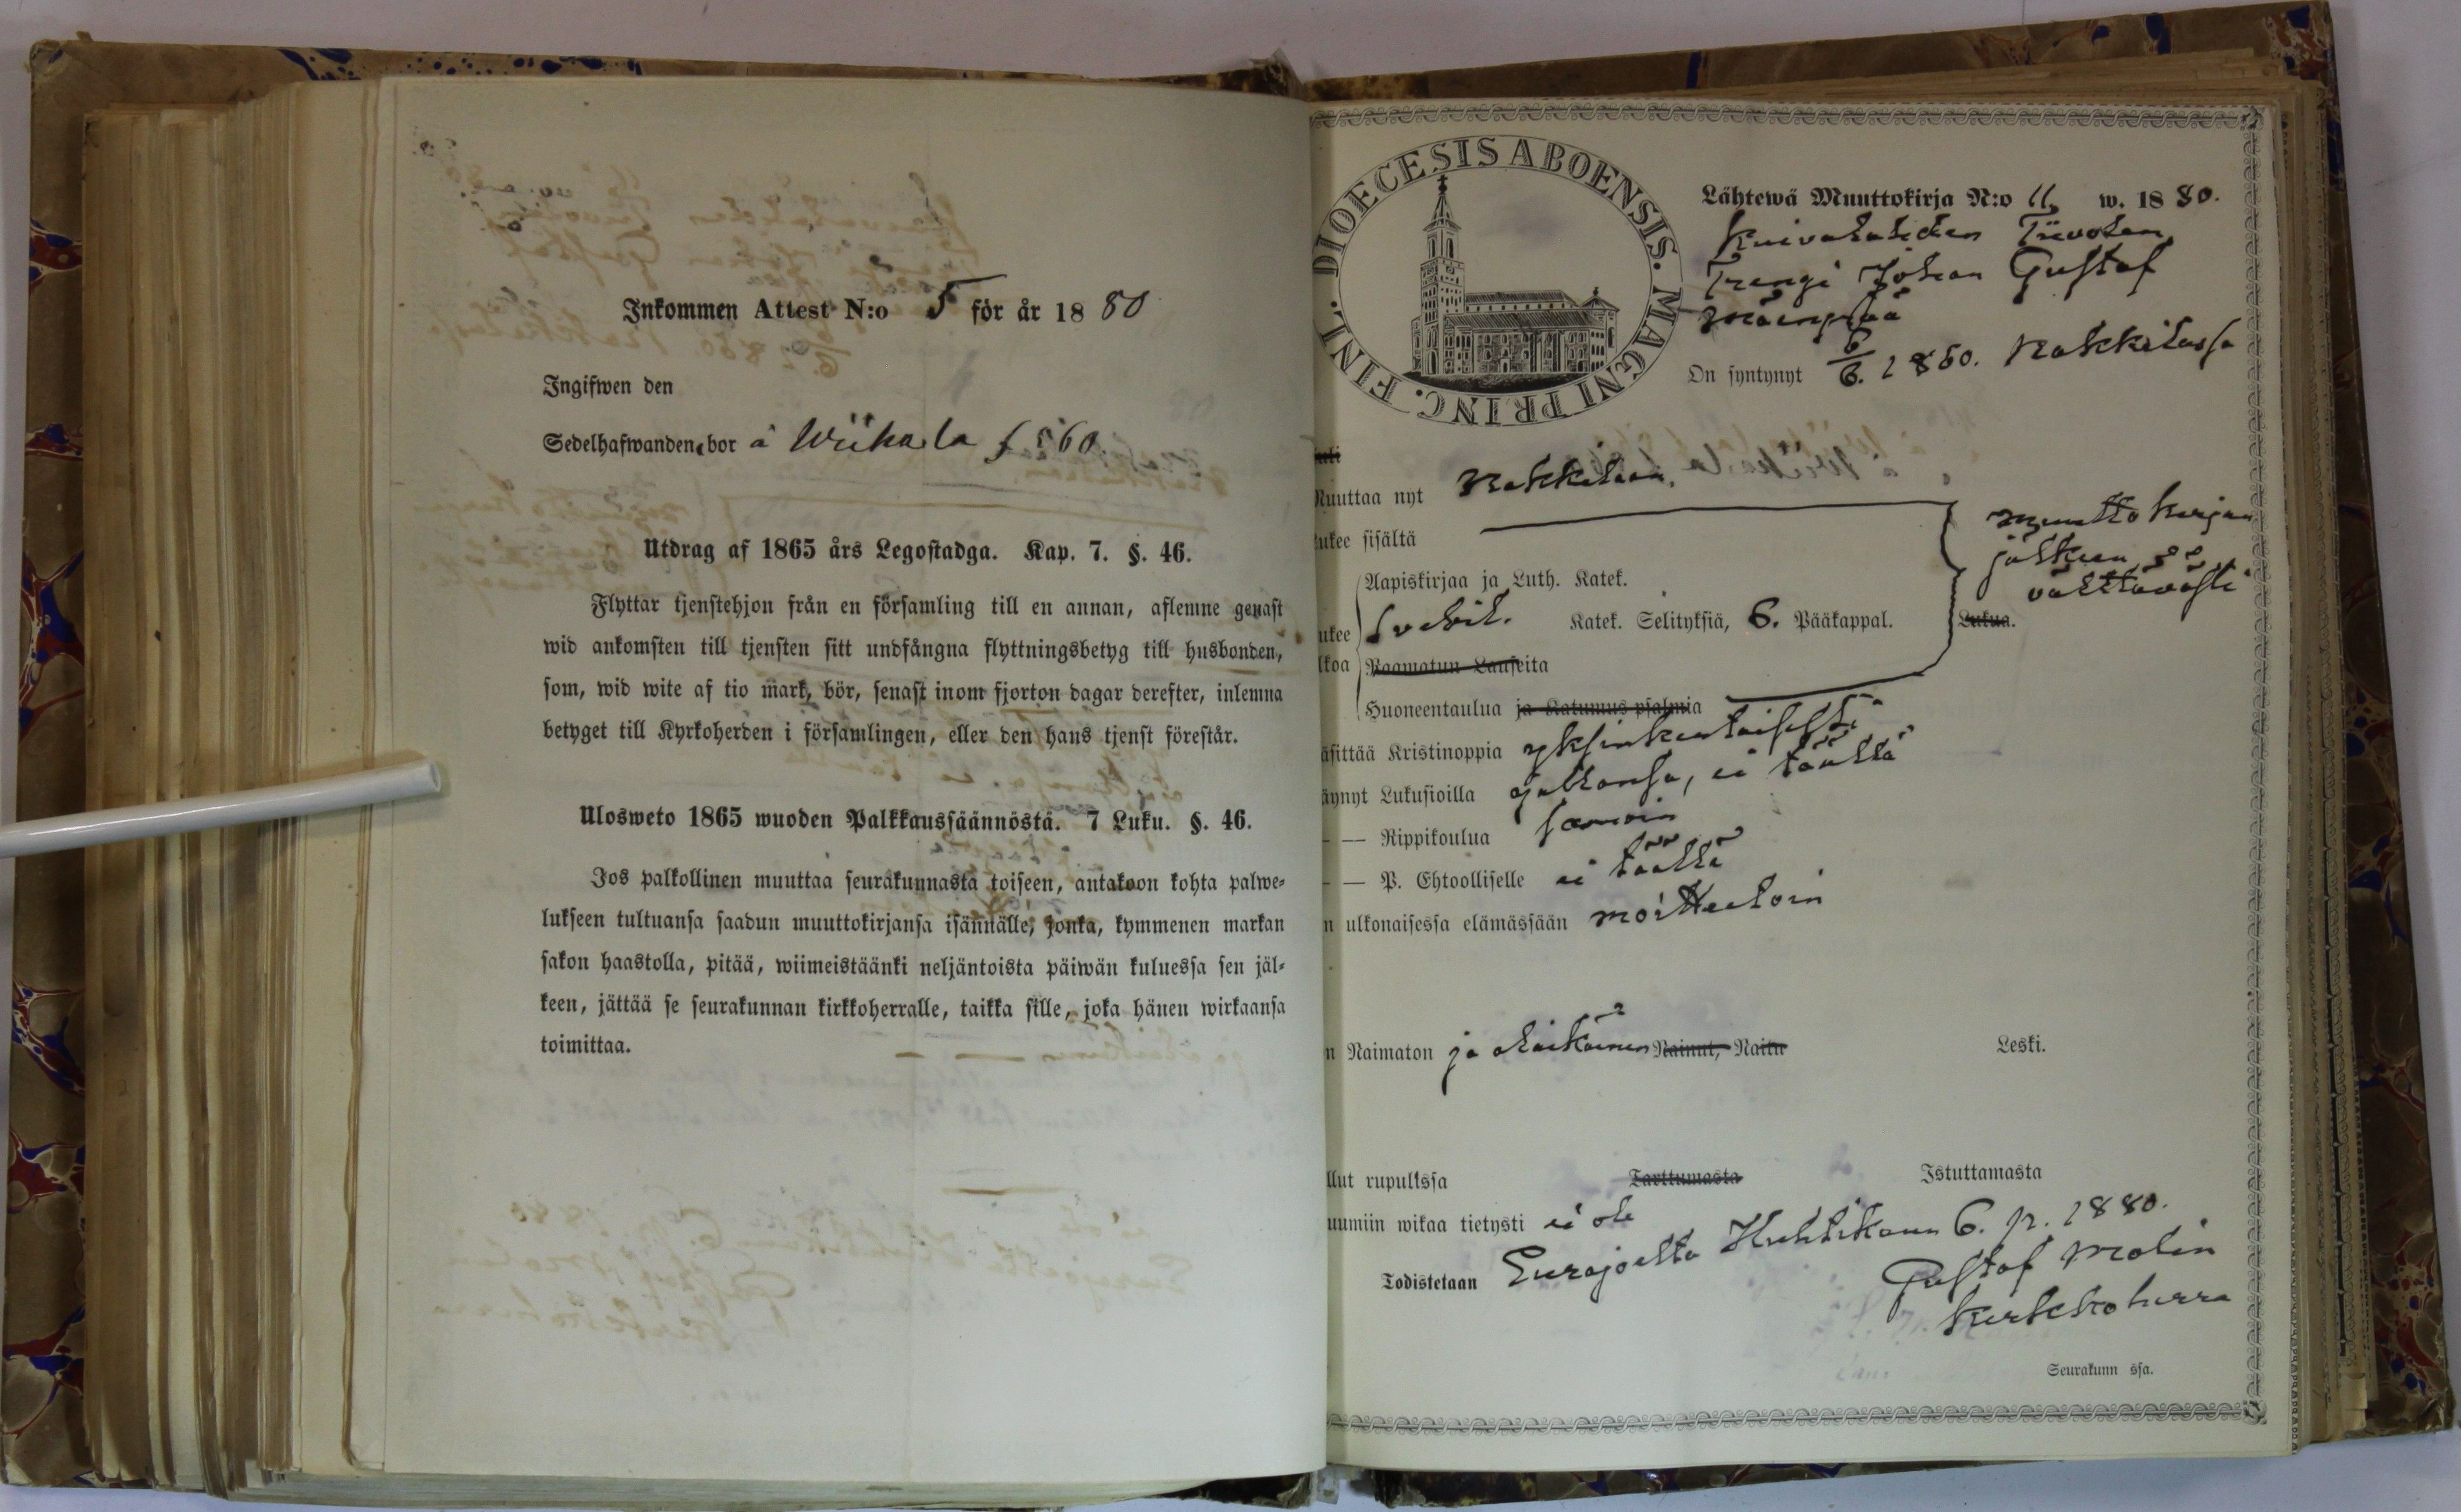 Inkommen Attest N:o 5 för år 1880
Ingifwen den
Sedelhafwanden bor å Wiikala f 560.
Utdrag af 1865 års Legostadga. Kap. 7. §. 46.
Flyttar tjenstehjon från en församling till en annan, aflemne genast
wid ankomsten till tjensten sitt undfångna flyttningsbetyg till husbonden,
som, wid wite af tio mark, bör, senast inom fjorton dagar derefter, inlemna
betyget till Kyrkoherden i församlingen, eller den hans tjenst förestår.
Ulosweto 1865 wuoden Palkkaussäännöstä. 7 Luku. §. 46.
Jos palkollinen muuttaa seurakunnasta toiseen, antakoon kohta palwe-
lukseen tultuansa saadun muuttokirjansa isännälle, jonka, kymmenen markan
sakon haastolla, pitää, wiimeistäänki neljäntoista päiwän kuluessa sen jäl-
keen, jättää se seurakunnan kirkkoherralle, taikka sille, joka hänen wirkaansa
toimittaa.
DIOECESIS ABOENSIS. MAGNI PRINC. FINL.
Lähtewä Muuttokirja N:o 11, w. 1880.
Kuivalahden
Trengi Johan Gustaf
Mäenpää
On syntynyt 6/6. 1860. Nakkilassa
Muuttaa nyt Nakkilaan.
lukee sisältä
muuttokirjan
jälkeen
välttävästi
Aapiskirjaa ja Luth. Katek.
ukee Svebil. Katek. Selityksiä, 6. Pääkappal. Lukua.
lkoa Raamatun Lauseita
Huoneentaulua ja Katumus psalmia
äsittää Kristinoppia yksinkertaisesti
äynyt Lukusioilla ajallansa, ei täältä
— Rippikoulua samoin
— P. Ehtoolliselle ei täältä
n ulkonaisessa elämässään moitteetoin
n Naimaton ja alaikäinen Nainut, Naitu Leski.
llut rupulissa Tarttumasta Istuttamasta
uumiin wikaa tietysti ei ole
Todistetaan Eurajoelta Huhtikuun 6. p. 1880.
Gustaf Molin
kirkkoherra
Seurakunn ssa.